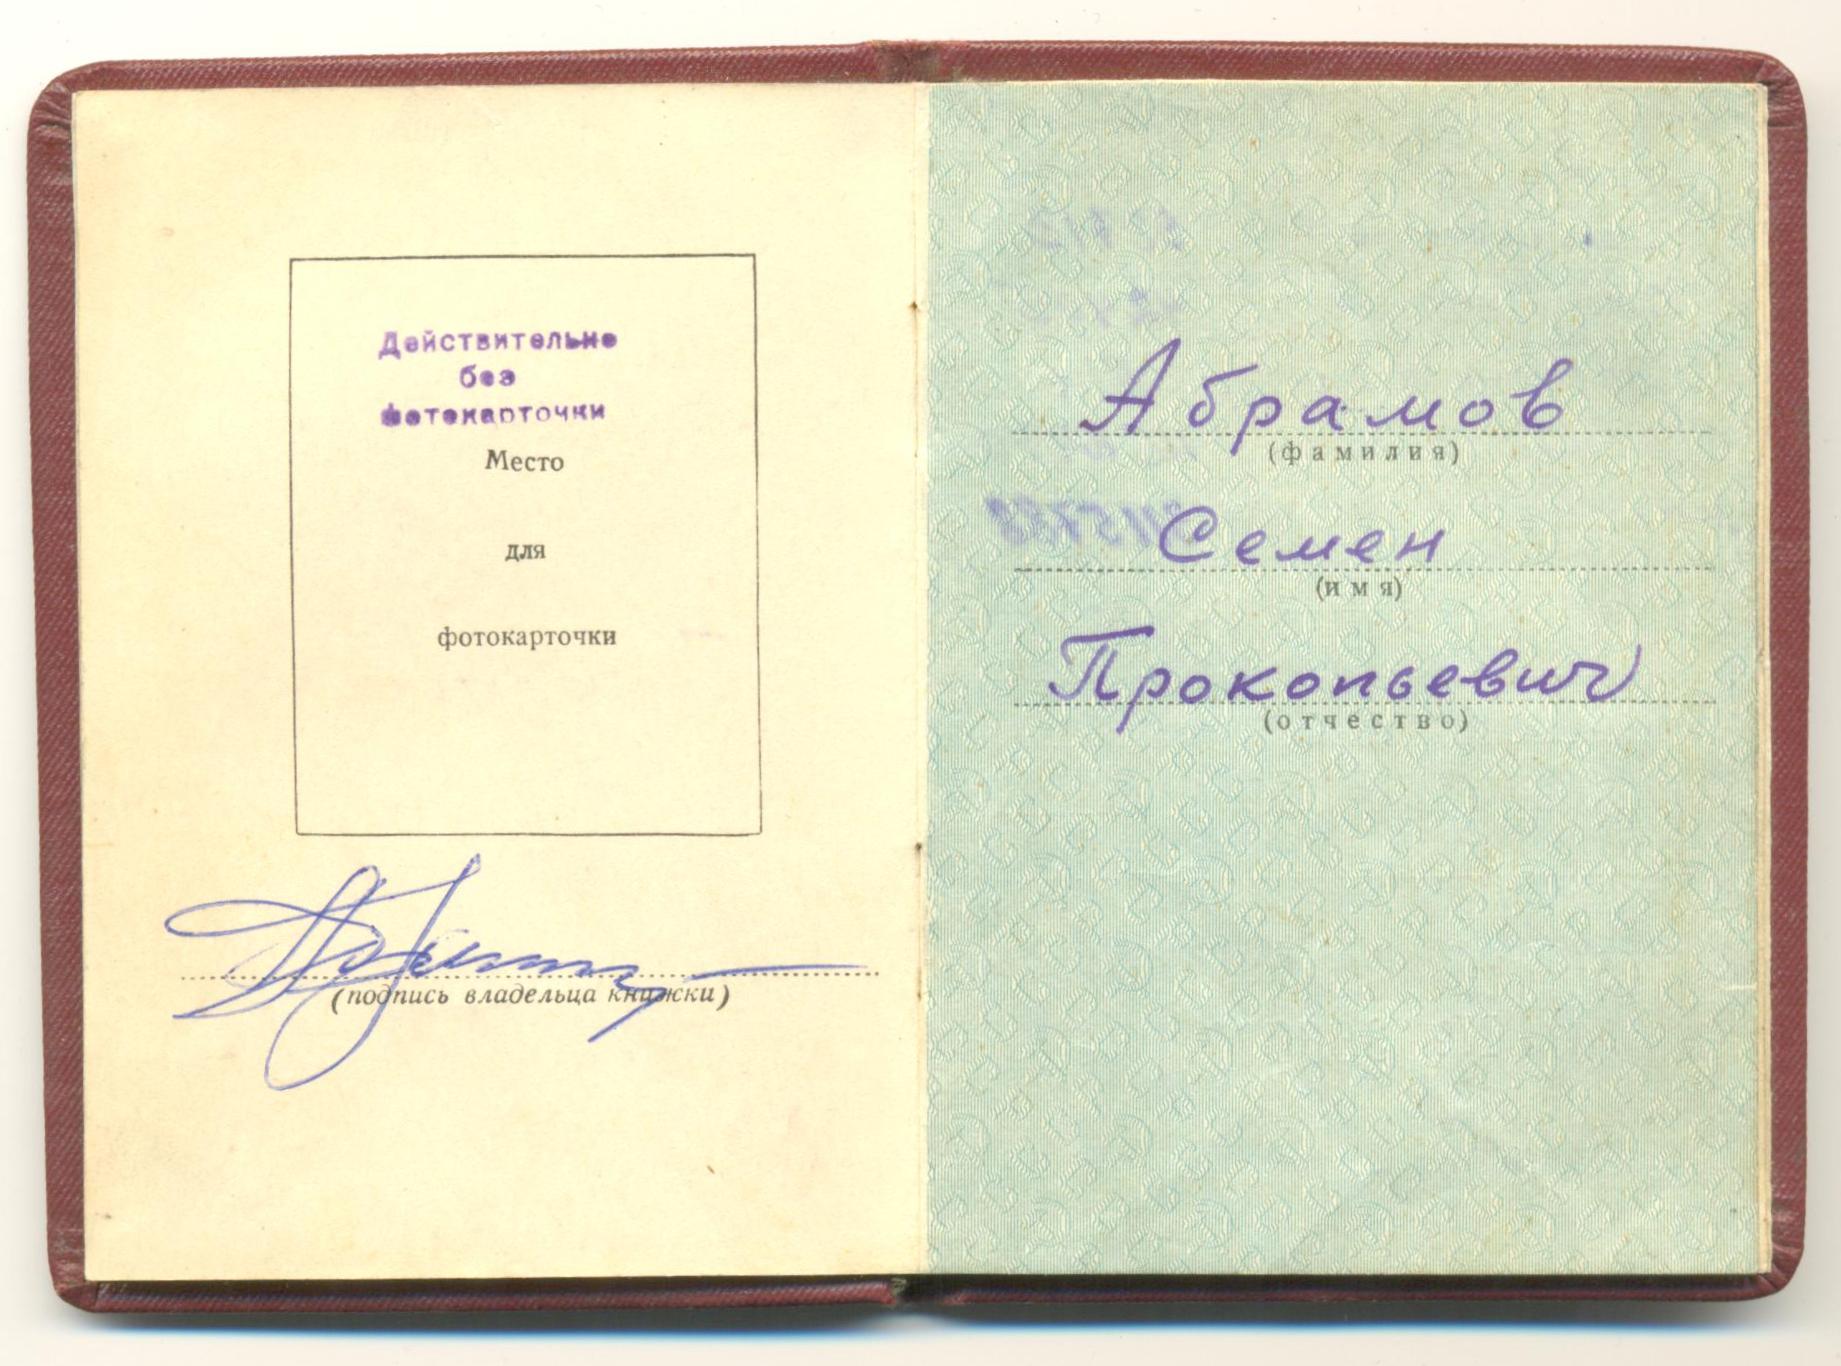 Действительно
без
фотокарточки
Место
для
фотокарточки
(подпись владельца книжки)
Абрамов
(фамилия)
Семен
(имя)
Прокопьевич
(отчество)